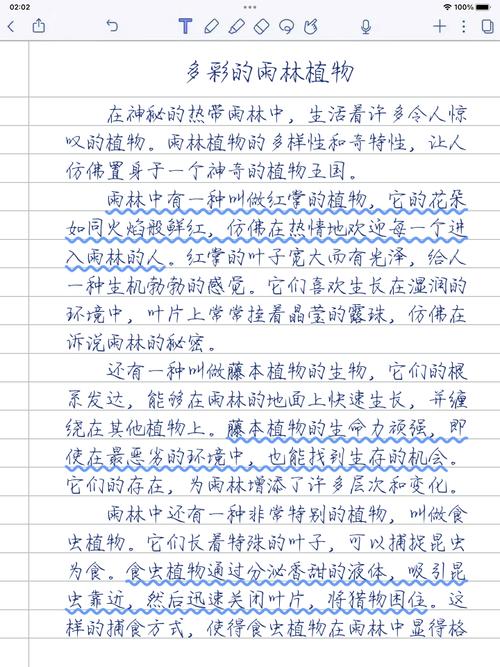 02:02
100%
多彩的雨林植物
在神秘的热带雨林中，生活着许多令人惊
叹的植物。雨林植物的多样性和奇特性，让人
仿佛置身于一个神奇的植物王国。
雨林中有一种叫做红掌的植物，它的花朵
如同火焰般鲜红，仿佛在热情地欢迎每一个进
入雨林的人。红掌的叶子宽大而有光泽，给人
一种生机勃勃的感觉。它们喜欢生长在湿润的
环境中，叶片上常常挂着晶莹的露珠，仿佛在
诉说雨林的秘密。
还有一种叫做藤本植物的生物，它们的根
系发达，能够在雨林的地面上快速生长，并缠
绕在其他植物上。藤本植物的生命力顽强，即
使在最恶劣的环境中，也能找到生存的机会。
它们的存在，为雨林增添了许多层次和变化。
雨林中还有一种非常特别的植物，叫做食
虫植物。它们长着特殊的叶子，可以捕捉昆虫
为食。食虫植物通过分泌香甜的液体，吸引昆
虫靠近，然后迅速关闭叶片，将猎物困住。这
样的捕食方式，使得食虫植物在雨林中显得格